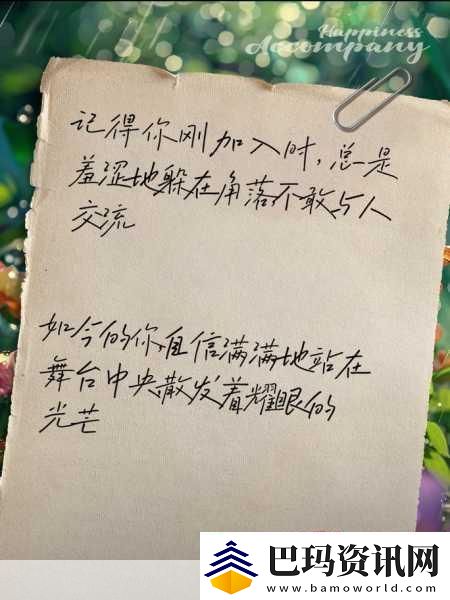 Happiness
Accompany
记得你刚加入时,总是
羞涩地躲在角落不敢与人
交流
如今的你自信满满地站在
舞台中央散发着耀眼的
光芒
巴玛资讯网
www.bamoworld.com